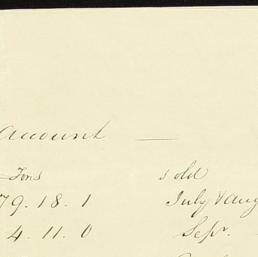 account —
Tons sold
79.18.1 July & Aug
4.11.0 Sepr.